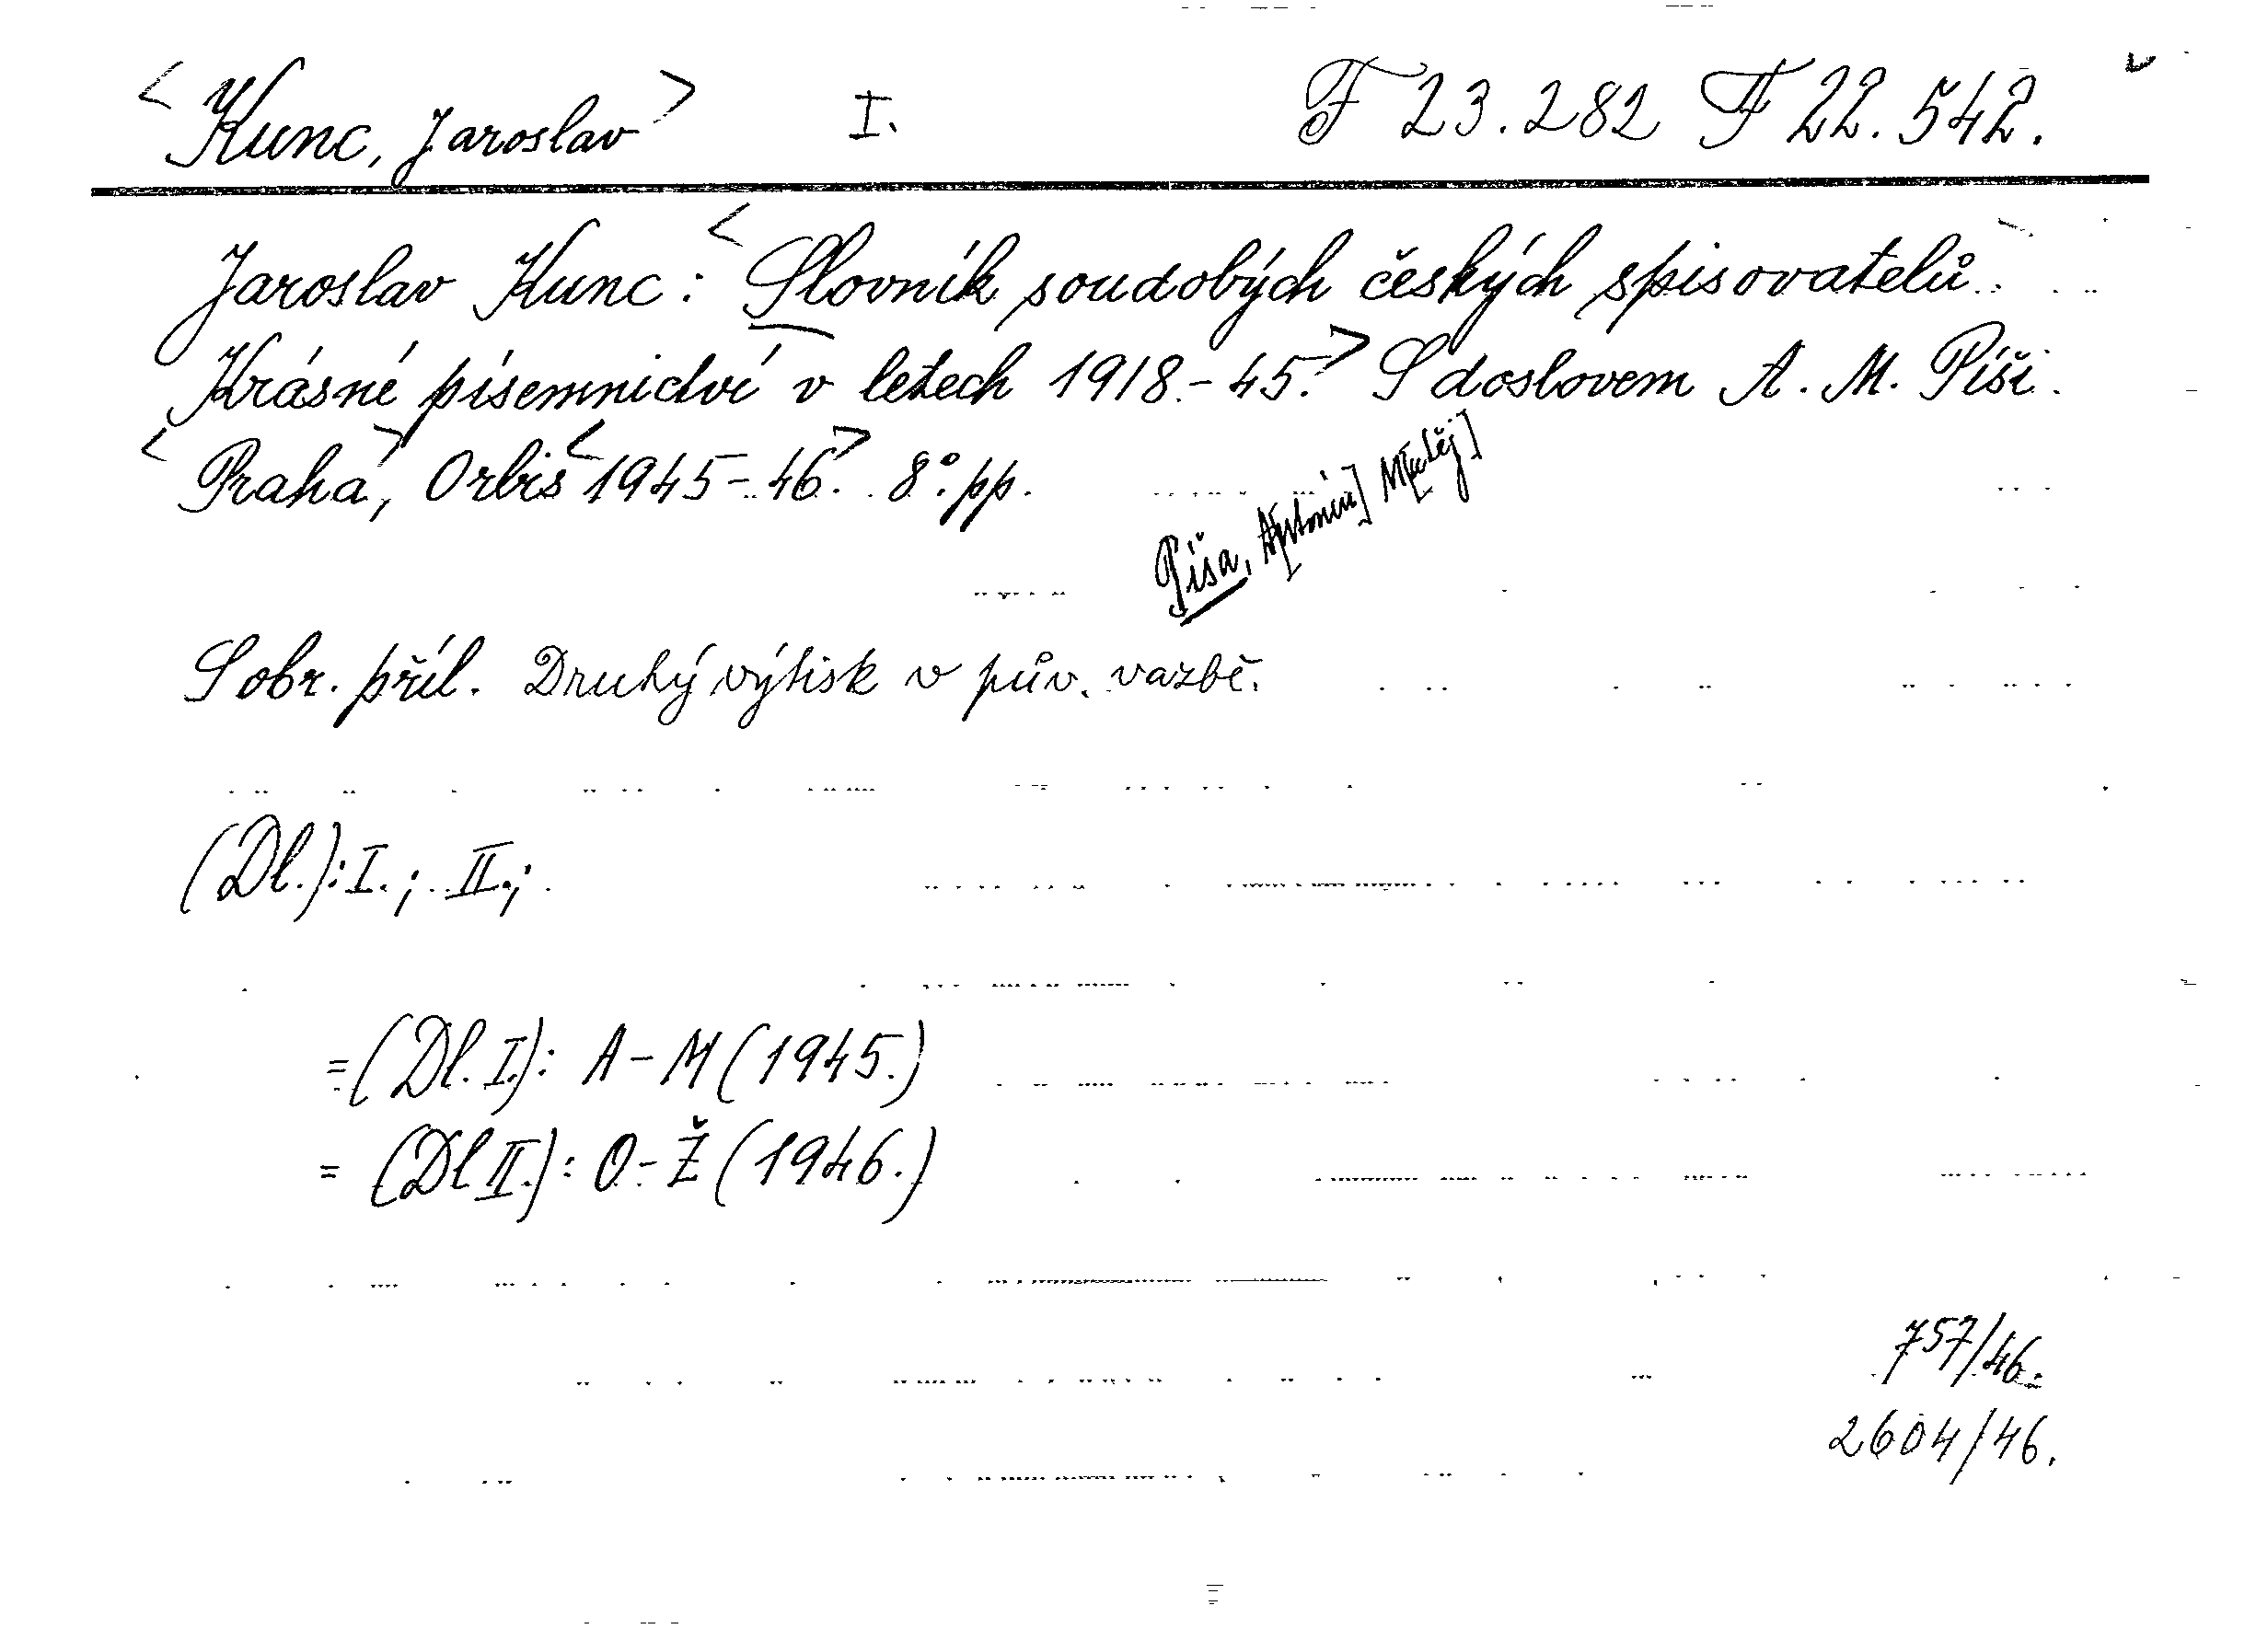 <Kunc, Jaroslav> I. F 23.282 F 22.542.
Jaroslav Kunc: <Slovník soudobých českých spisovatelů.
Krásné písemnictví v letech 1918.-45.> S doslovem A. M. Píši.
<Praha>, Orbis <1945-46.> 8°. pp.
Píša, A[ntonín] M[atěj]
S obr. příl. Druhý výtisk v pův. vazbě.
(Dl.): I.; II.;
=(Dl. I.): A-M (1945.)
= (Dl II.): O-Ž (1946.)
757/46.
2604/46.